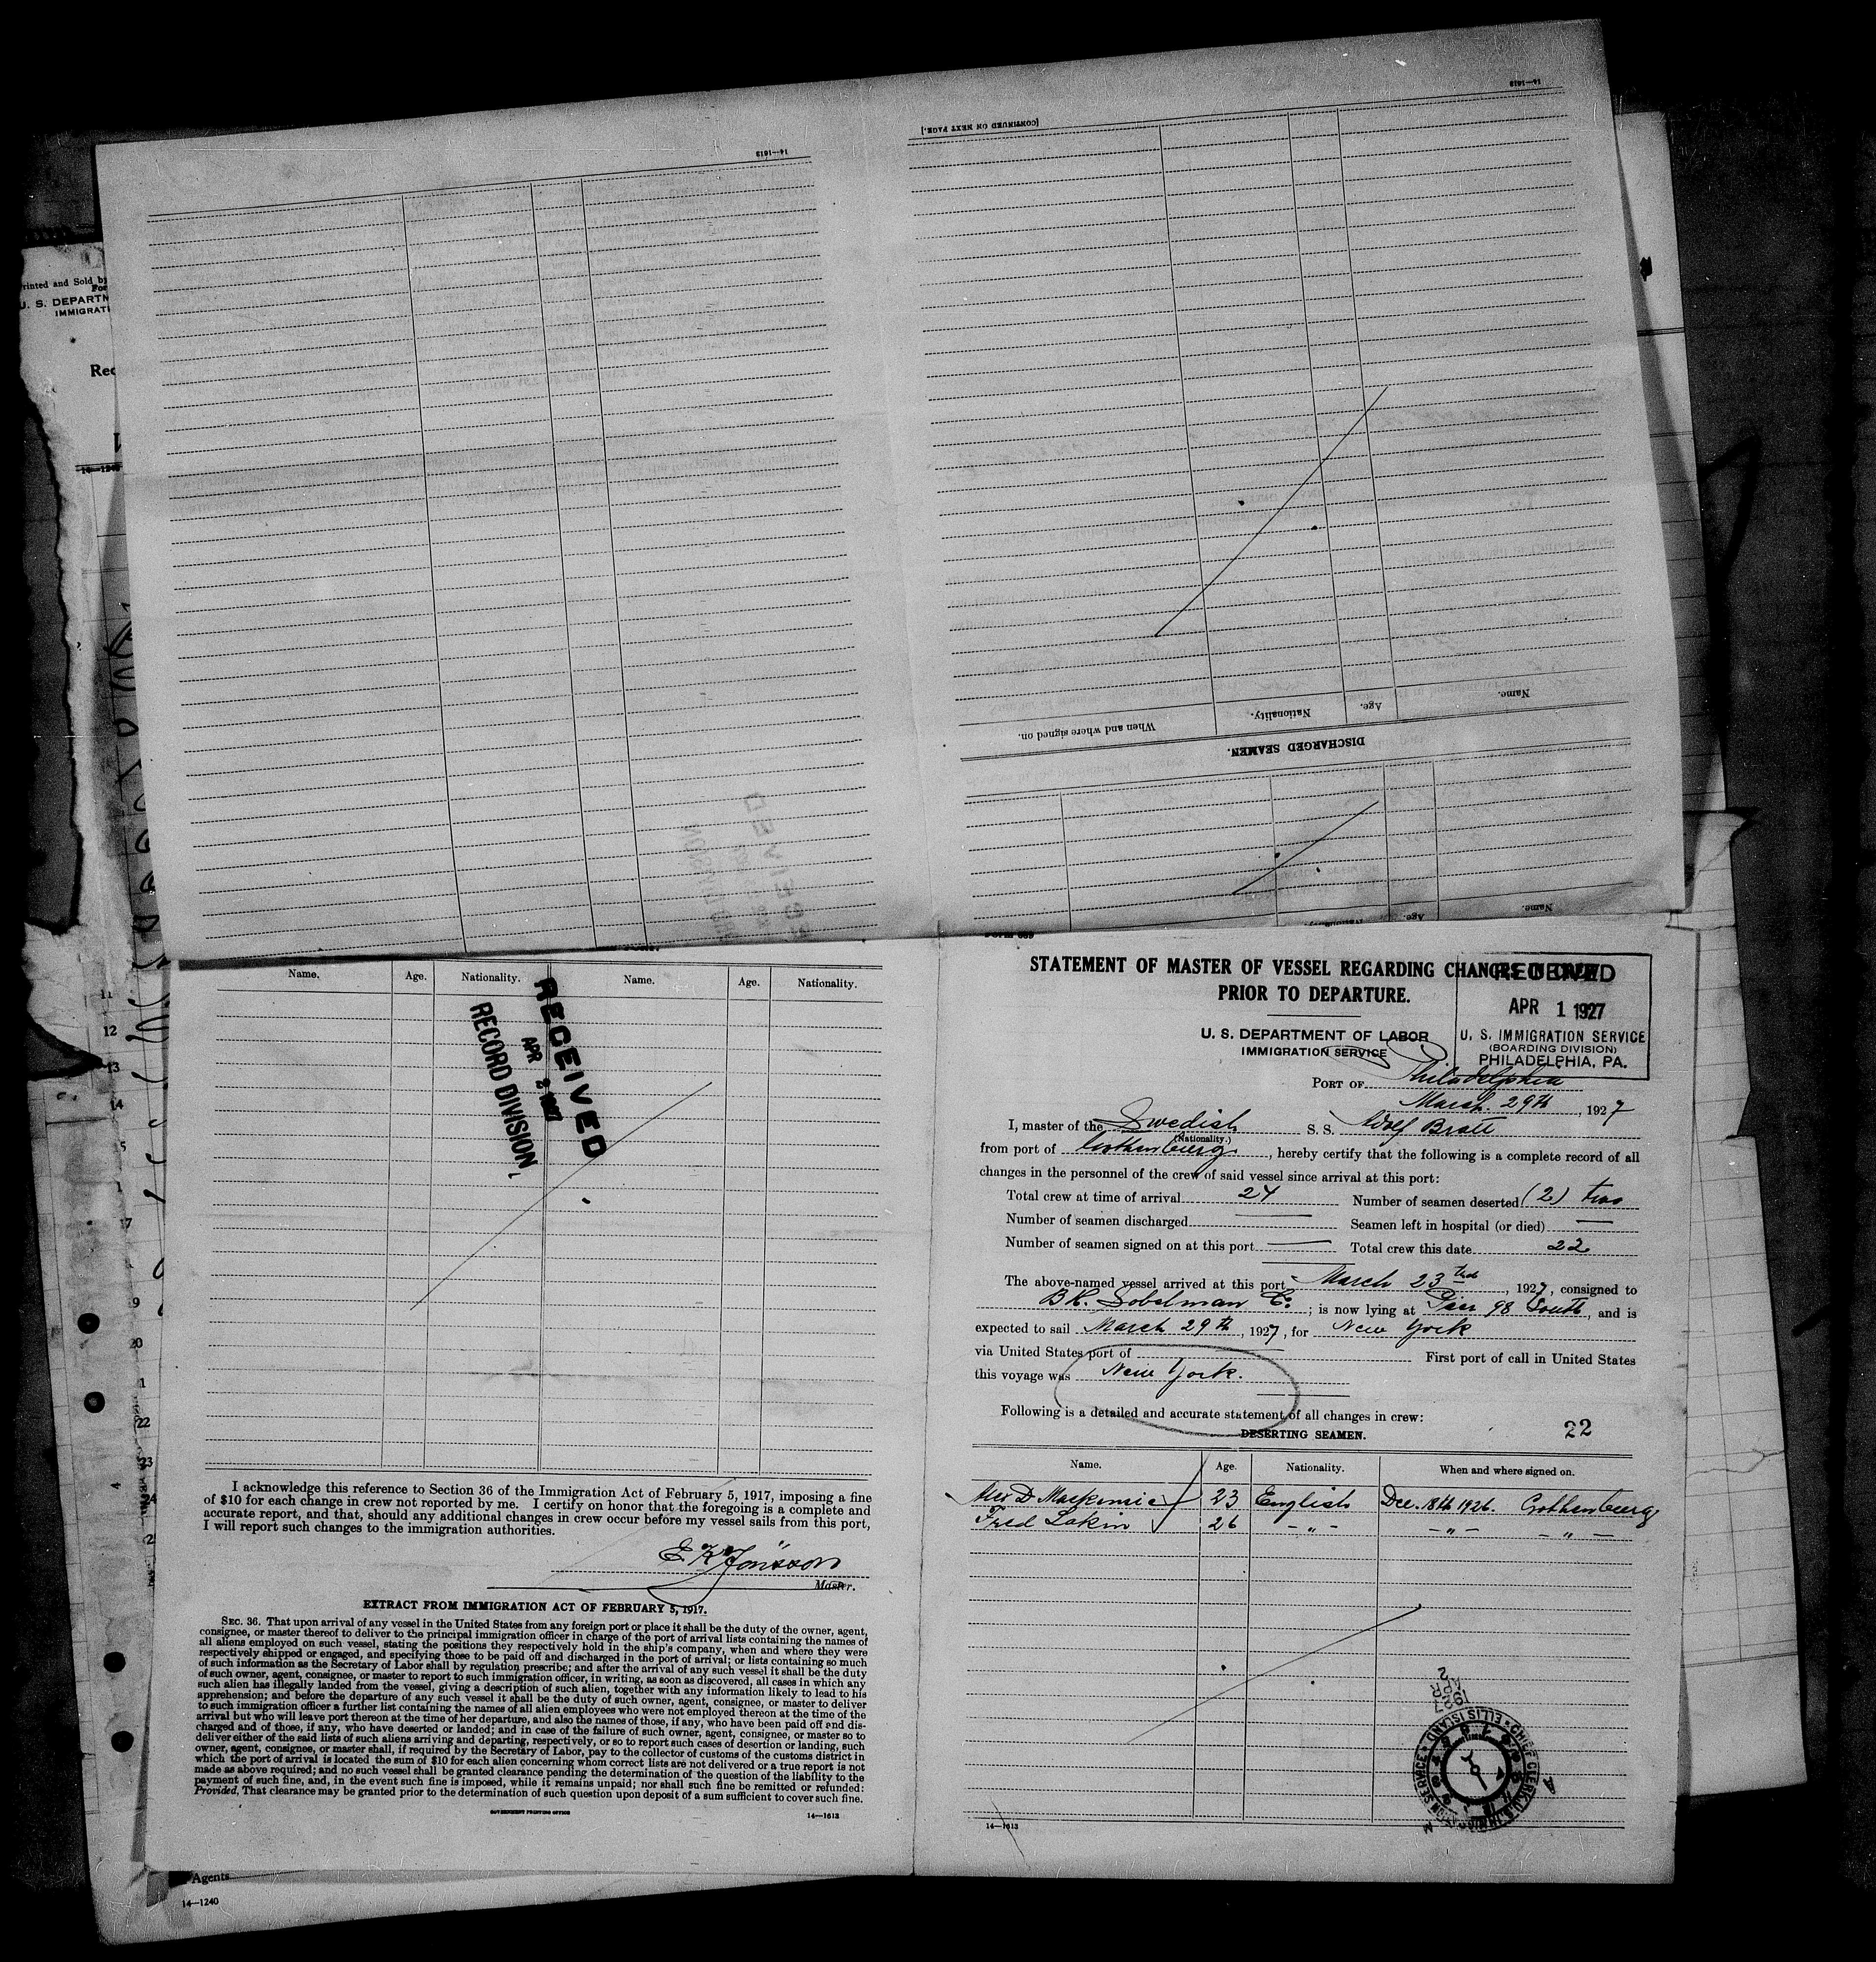 14—1613
[CONTINUED ON NEXT PAGE.]
14—1613
Name.
Age.
Nationality.
When and where signed on.
DISCHARGED SEAMEN.
Name.
Age.
Printed and Sold by
For
U. S. DEPARTM
IMMIGRATI
Rec
14—1240
11
12
13
14
5
1
17
9
20
1
22
23
24
2
4
Name. Age. Nationality. Name. Age. Nationality.
RECEIVED
APR 2 1927
RECORD DIVISION
I acknowledge this reference to Section 36 of the Immigration Act of February 5, 1917, imposing a fine
of $10 for each change in crew not reported by me. I certify on honor that the foregoing is a complete and
accurate report, and that, should any additional changes in crew occur before my vessel sails from this port,
I will report such changes to the immigration authorities.
E K Jönsson
Master.
EXTRACT FROM IMMIGRATION ACT OF FEBRUARY 5, 1917.
SEC. 36. That upon arrival of any vessel in the United States from any foreign port or place it shall be the duty of the owner, agent,
consignee, or master thereof to deliver to the principal immigration officer in charge of the port of arrival lists containing the names of
all aliens employed on such vessel, stating the positions they respectively hold in the ship's company, when and where they were
respectively shipped or engaged, and specifying those to be paid off and discharged in the port of arrival; or lists containing so much
of such information as the Secretary of Labor shall by regulation prescribe; and after the arrival of any such vessel it shall be the duty
of such owner, agent, consignee, or master to report to such immigration officer, in writing, as soon as discovered, all cases in which any
such alien has illegally landed from the vessel, giving a description of such alien, together with any information likely to lead to his
apprehension; and before the departure of any such vessel it shall be the duty of such owner, agent, consignee, or master to deliver
to such immigration officer a further list containing the names of all alien employees who were not employed thereon at the time of the
arrival but who will leave port thereon at the time of her departure, and also the names of those, if any, who have been paid off and dis-
charged and of those, if any, who have deserted or landed; and in case of the failure of such owner, agent, consignee, or master so to
deliver either of the said lists of such aliens arriving and departing, respectively, or so to report such cases of desertion or landing, such
owner, agent, consignee, or master shall, if required by the Secretary of Labor, pay to the collector of customs of the customs district in
which the port of arrival is located the sum of $10 for each alien concerning whom correct lists are not delivered or a true report is not
made as above required; and no such vessel shall be granted clearance pending the determination of the question of the liability to the
payment of such fine, and, in the event such fine is imposed, while it remains unpaid; nor shall such fine be remitted or refunded:
Provided, That clearance may be granted prior to the determination of such question upon deposit of a sum sufficient to cover such fine.
GOVERNMENT PRINTING OFFICE
14—1613
Agents
14—1240
STATEMENT OF MASTER OF VESSEL REGARDING CHANGES IN CREW
PRIOR TO DEPARTURE.
U. S. DEPARTMENT OF LABOR
IMMIGRATION SERVICE
RECEIVED
APR 1 1927
U. S. IMMIGRATION SERVICE
(BOARDING DIVISION)
PHILADELPHIA, PA.
PORT OF Philadelphia
March. 29th, 1927
I, master of the Swedish S. S. Adolf Bratt
(Nationality.)
from port of Gothenburg, hereby certify that the following is a complete record of all
changes in the personnel of the crew of said vessel since arrival at this port:
Total crew at time of arrival 24 Number of seamen deserted (2) two
Number of seamen discharged — Seamen left in hospital (or died) —
Number of seamen signed on at this port — Total crew this date 22
The above-named vessel arrived at this port March 23, 1927, consigned to
B.H. Sobelman Co. ; is now lying at Pier 98 South, and is
expected to sail March 29th, 1927, for New York
via United States port of First port of call in United States
this voyage was New York.
Following is a detailed and accurate statement of all changes in crew:
22
DESERTING SEAMEN.
Name. Age. Nationality. When and where signed on.
Alex D Mackensie 23 English Dec. 18th 1926. Gothenburg
Fred Lakin 26 —"— —"— —"—
CHIEF CLERK, U.S. IMMIGRATION SERVICE ELLIS ISLAND
14—1613